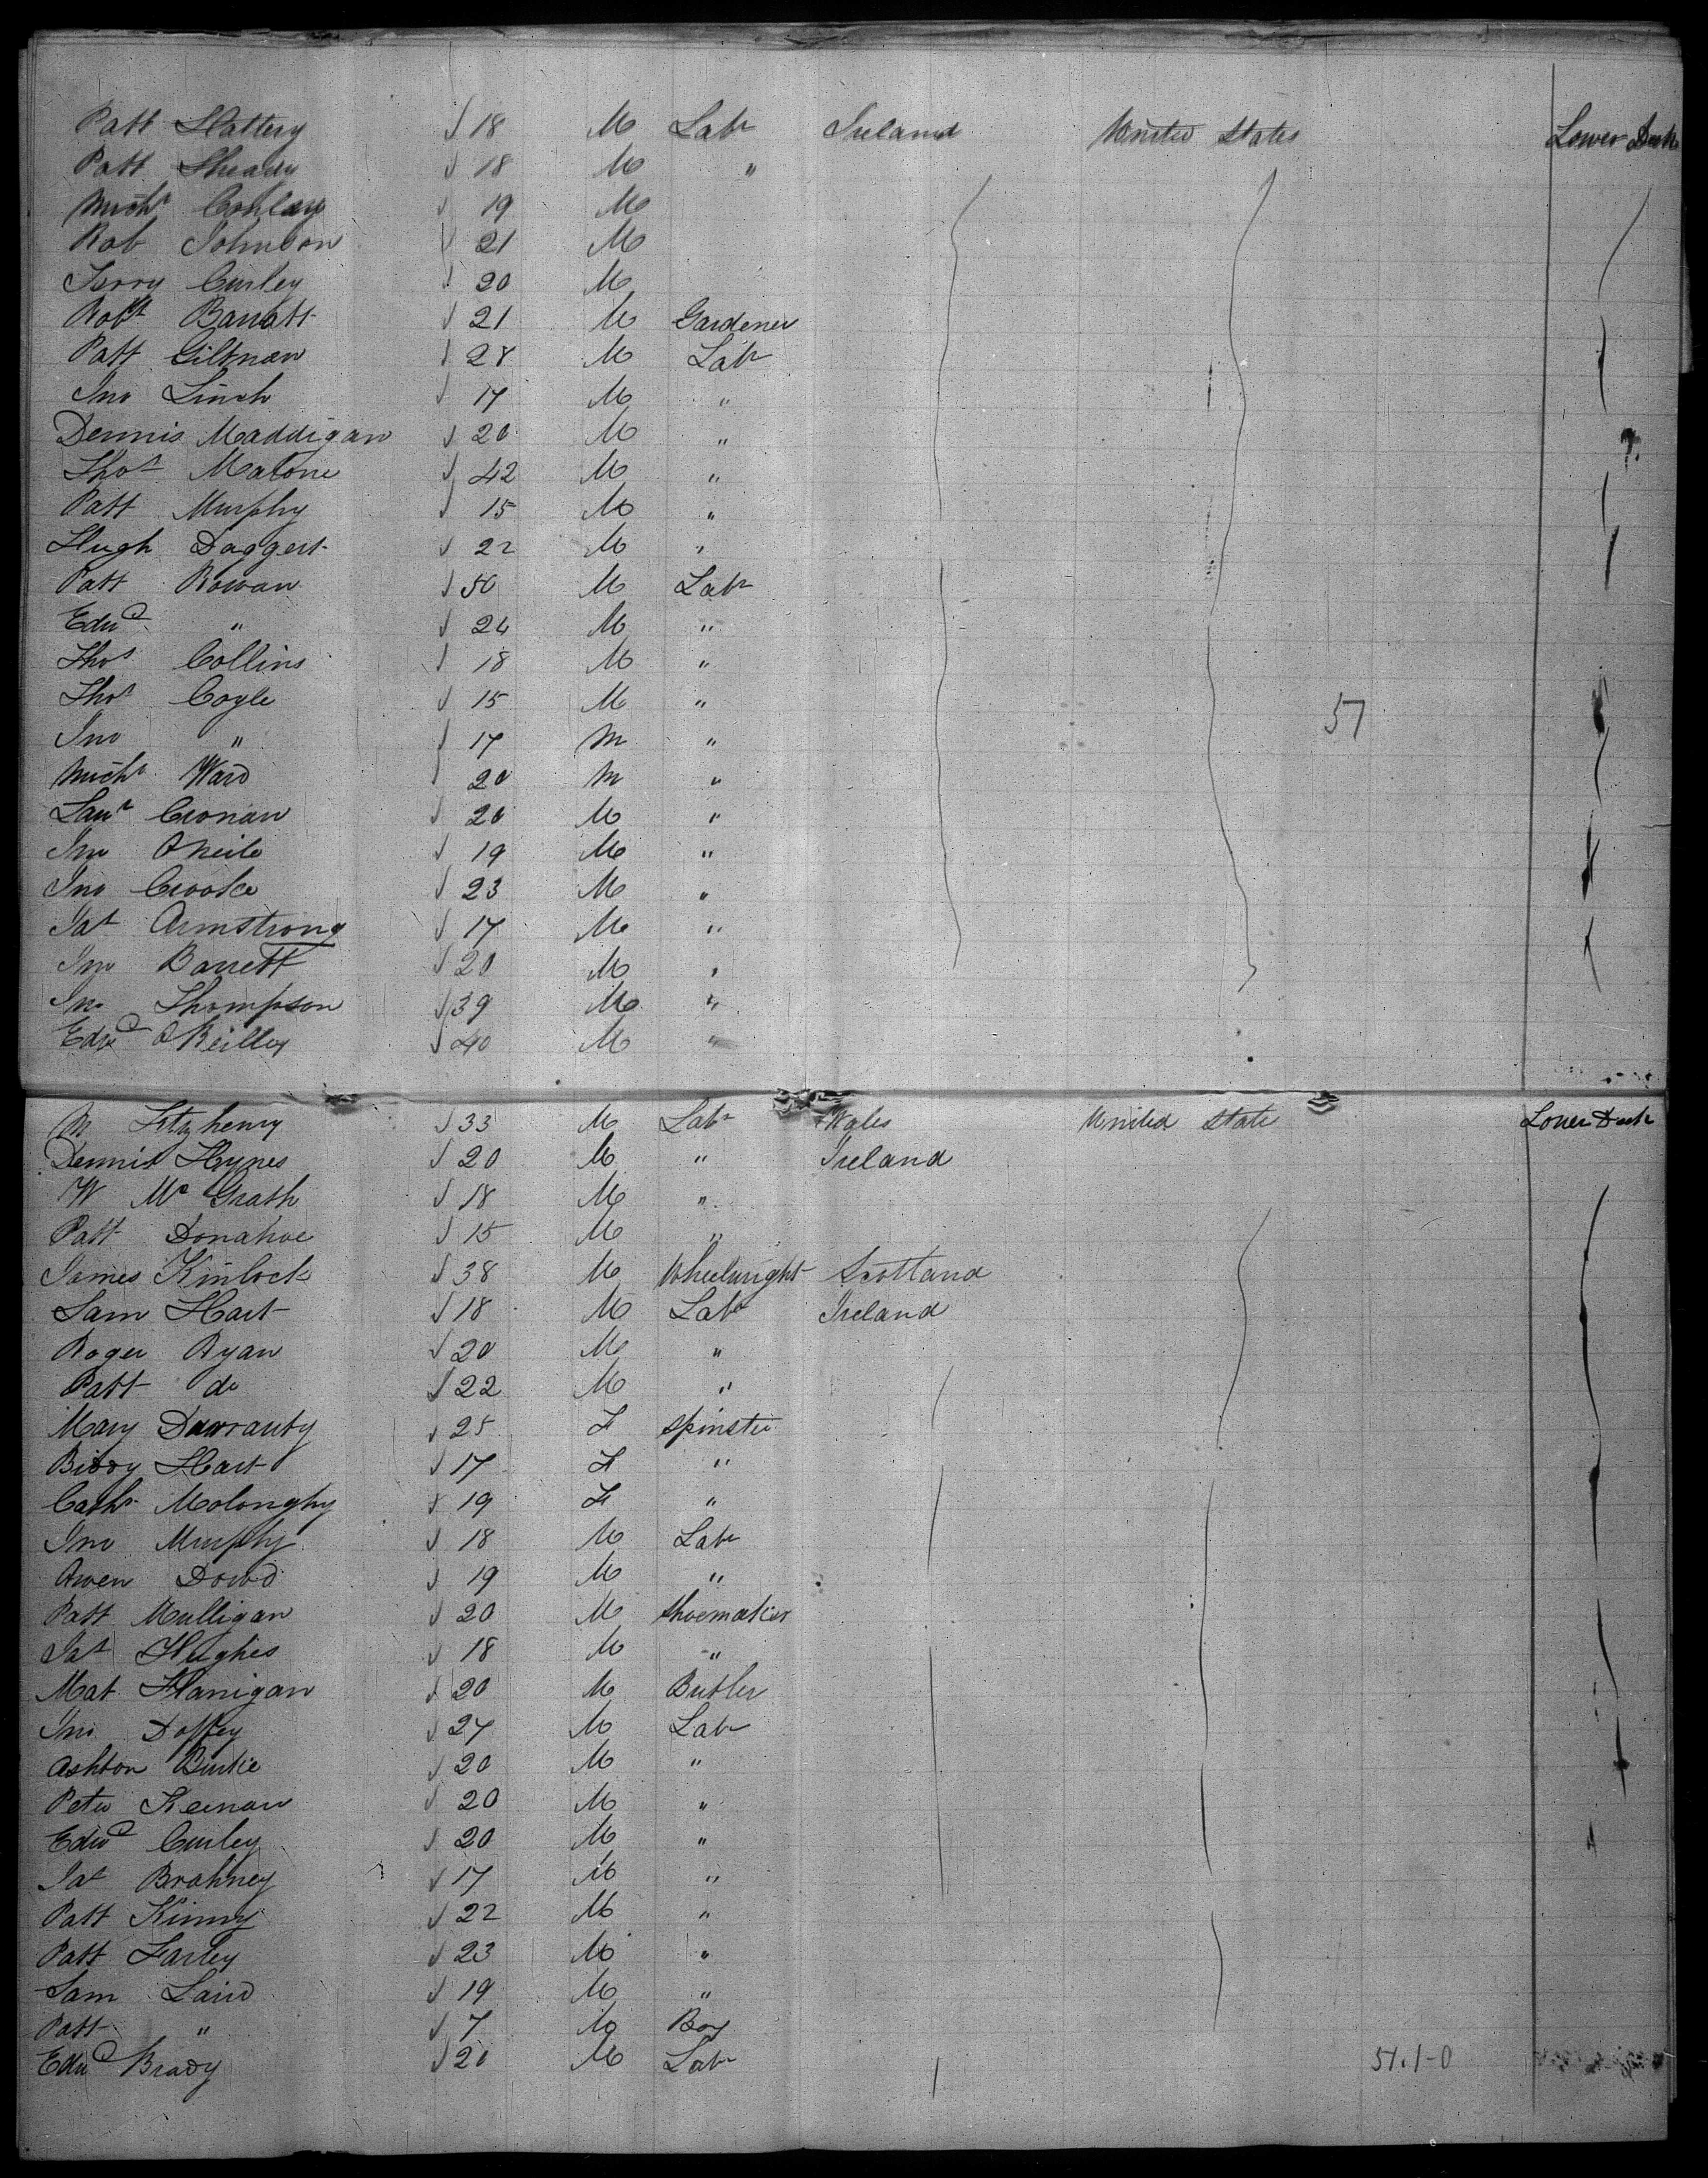 Patt Slattery 18 M Labr Ireland United States Lower Deck
Patt Shealy 18 M "
Michl Conlay 19 M
Rob Johnson 21 M
Terry Curley 20 M
Robt Barratt 21 M Gardener
Patt Giltnan 28 M Labr
Jno Linch 17 M "
Dennis Maddigan 20 M "
Thos Malone 42 M "
Patt Murphy 15 M "
Hugh Daggert 22 M "
Patt Rowan 50 M Labr
Edwd " 24 M "
Thos Collins 18 M "
Thos Coyle 15 M " 51
Jno " 17 M "
Michl Ward 20 M "
Laur Cronan 20 M "
Jno ONeile 19 M "
Jno Crooke 23 M "
Jas Armstrong 17 M "
Jno Barrett 20 M "
Jno Thompson 39 M "
Edwd OReilley 40 M "
M Fitzhenry 33 M Labr Wales United State Lower Deck
Dennis Hynes 20 M " Ireland
W McGrath 18 M "
Patt Donahoe 15 M "
James Kinlock 38 M Wheelwright Scotland
Sam Hart 18 M Labr Ireland
Roger Ryan 20 M "
Patt do 22 M "
Mary Dawranty 25 F Spinster
Biddy Hart 17 F "
Cathr Molonghy 19 F "
Jno Murphy 18 M Labr
Owen Dowd 19 M "
Patt Mulligan 20 M Shoemaker
Jas Hughes 18 M "
Mat Flanigan 20 M Butler
Jno Doffey 27 M Labr
Ashton Burke 20 M "
Peter Keenan 20 M "
Edwd Curley 20 M "
Jas Brahney 17 M "
Patt Kinny 22 M "
Patt Farley 23 M "
Sam Laird 19 M "
Patt " 7 M Boy
Edwd Brady 20 M Labr 51.1-0